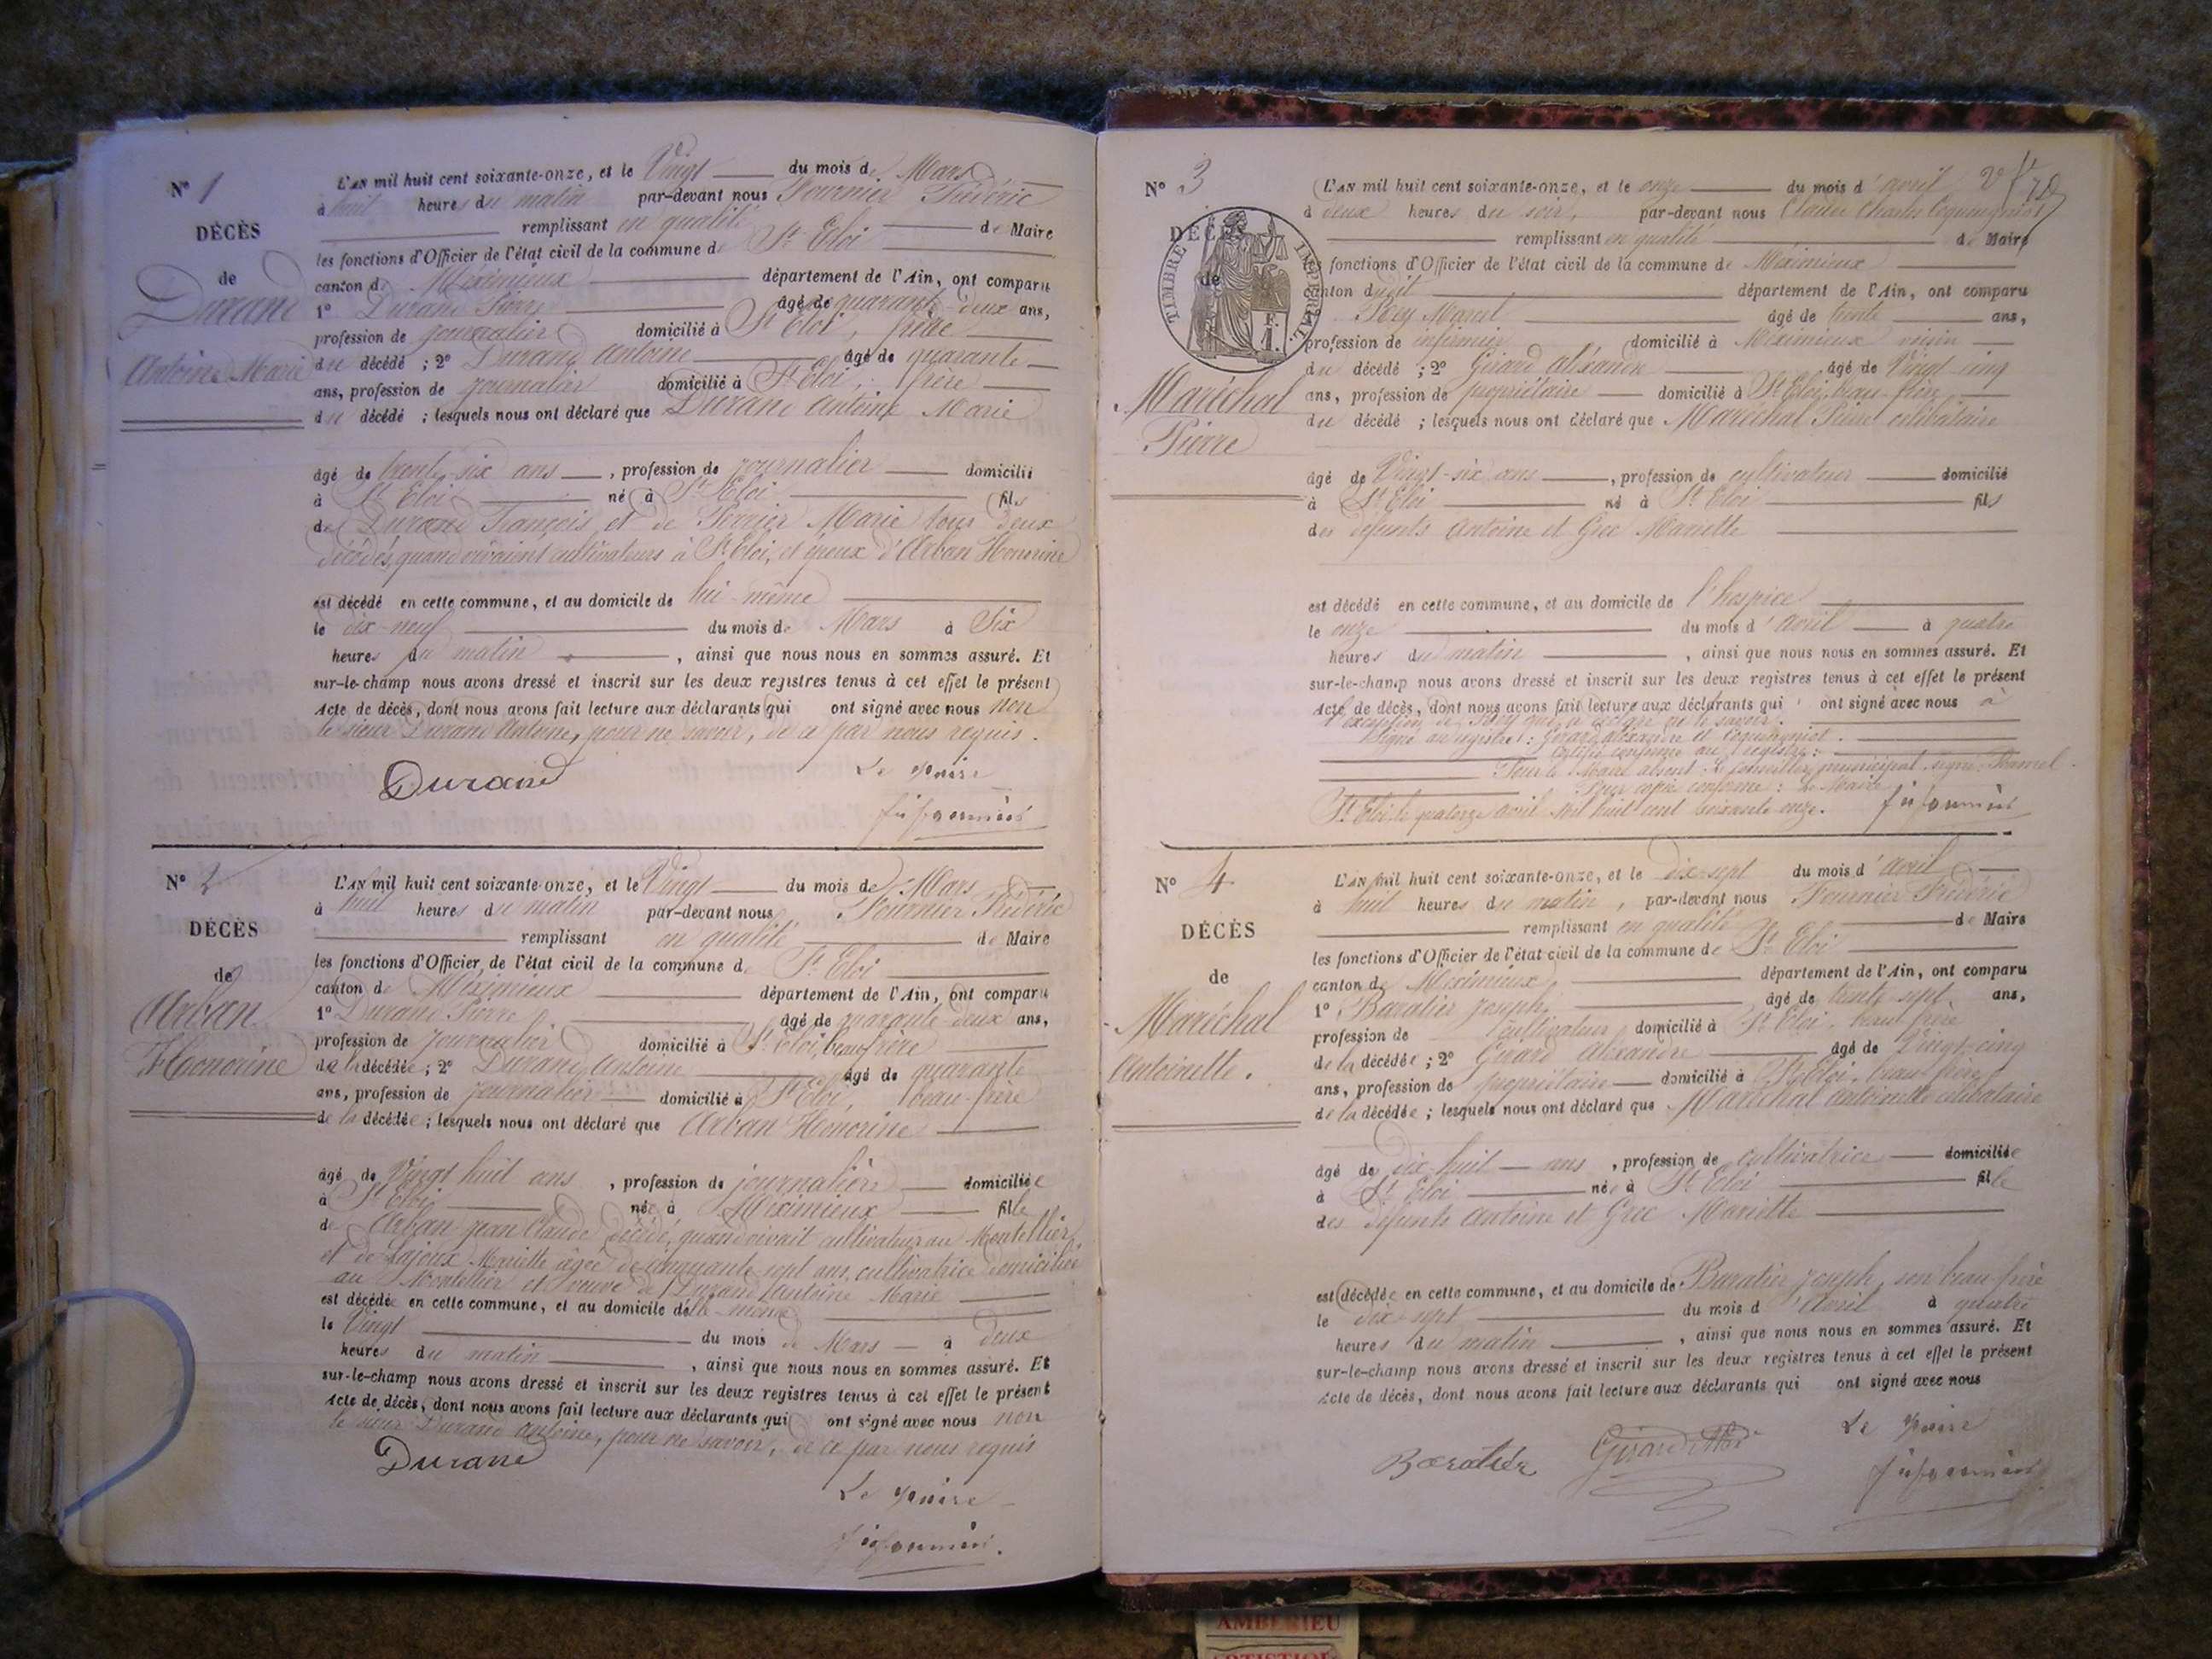 N° 1
DÉCÈS
de
Durand
Antoine Marie
L'AN mil huit cent soixante-onze, et le Vingt du mois de Mars
à huit heures du matin par-devant nous Fournier Frédéric
remplissant en qualité de Maire
les fonctions d'Officier de l'état civil de la commune de St Eloi
canton de Meximieux département de l'Ain, ont comparu
1° Durand Pierre âgé de quarante deux ans,
profession de journalier domicilié à St Eloi, frère
du décédé ; 2° Durand Antoine âgé de quarante
ans, profession de journalier domicilié à St Eloi, frère
du décédé ; lesquels nous ont déclaré que Durand Antoine Marie
âgé de trente-six ans, profession de journalier domicilié
à St Eloi né à St Eloi fils
de Durand François et de Perrier Marie tous deux
décédés, quand vivaient cultivateurs à St Eloi, et époux d'Arban Honorine
est décédé en cette commune, et au domicile de lui-même
le dix-neuf du mois de Mars à Six
heures du matin, ainsi que nous nous en sommes assuré. Et
sur-le-champ nous avons dressé et inscrit sur les deux registres tenus à cet effet le présent
Acte de décès, dont nous avons fait lecture aux déclarants qui ont signé avec nous non
le sieur Durand Antoine, pour ne savoir, de ce par nous requis.
Durand
Le Maire
N° 2
DÉCÈS
de
Arban
Honorine
L'AN mil huit cent soixante-onze, et le Vingt du mois de Mars
à huit heures du matin par-devant nous Fournier Frédéric
remplissant en qualité de Maire
les fonctions d'Officier de l'état civil de la commune de St Eloi
canton de Meximieux département de l'Ain, ont comparu
1° Durand Pierre âgé de quarante-deux ans,
profession de journalier domicilié à St Eloi, beau-frère
de la décédée ; 2° Durand Antoine âgé de quarante
ans, profession de journalier domicilié à St Eloi, beau-frère
de la décédée ; lesquels nous ont déclaré que Arban Honorine
âgé de Vingt huit ans, profession de journalière domiciliée
à St Eloi née à Meximieux fille
de Arban Jean Claude décédé, quand vivait cultivateur au Montellier
et de Lajoux Mariette âgée de cinquante sept ans, cultivatrice domiciliée
au Montellier et veuve de Durand Antoine Marie
est décédée en cette commune, et au domicile d'elle-même
le Vingt du mois de Mars à deux
heures du matin, ainsi que nous nous en sommes assuré. Et
sur-le-champ nous avons dressé et inscrit sur les deux registres tenus à cet effet le présent
Acte de décès, dont nous avons fait lecture aux déclarants qui ont signé avec nous non
le sieur Durand Antoine, pour ne savoir, de ce par nous requis
Durand
Le Maire
N° 3
DÉCÈS
de
TIMBRE IMPÉRIAL
Maréchal
Pierre
L'AN mil huit cent soixante-onze, et le onze du mois d'avril
à deux heures du soir, par-devant nous Claude Charles
remplissant en qualité de Maire
les fonctions d'Officier de l'état civil de la commune de Méximieux
canton dudit département de l'Ain, ont comparu
Rey Marcel âgé de trente ans,
profession de infirmier domicilié à Méximieux voisin
du décédé ; 2° Girard Alexandre âgé de Vingt-cinq
ans, profession de propriétaire domicilié à St Eloi, beau-frère
du décédé ; lesquels nous ont déclaré que Maréchal Pierre célibataire
âgé de Vingt-six ans, profession de cultivateur domicilié
à St Eloi né à St Eloi fils
des défunts Antoine et Grec Mariette
est décédé en cette commune, et au domicile de l'hospice
le onze du mois d'avril à quatre
heures du matin, ainsi que nous nous en sommes assuré. Et
sur-le-champ nous avons dressé et inscrit sur les deux registres tenus à cet effet le présent
Acte de décès, dont nous avons fait lecture aux déclarants qui ont signé avec nous à
l'exception de Rey qui a déclaré ne le savoir.
Signé au registre : Girard Alexandre et
Certifié conforme au registre :
Pour le Maire absent : Le conseiller municipal signé
Pour copie conforme : Le Maire
St Eloi le quatorze avril mil huit cent soixante onze.
N° 4
DÉCÈS
de
Maréchal
Antoinette.
L'AN mil huit cent soixante-onze, et le dix-sept du mois d'avril
à huit heures du matin, par-devant nous Fournier Frédéric
remplissant en qualité de Maire
les fonctions d'Officier de l'état civil de la commune de St Eloi
canton de Méximieux département de l'Ain, ont comparu
1° Baratier Joseph âgé de trente-sept ans,
profession de cultivateur domicilié à St Eloi, beau-frère
de la décédée ; 2° Girard Alexandre âgé de Vingt-cinq
ans, profession de propriétaire domicilié à St Eloi, beau-frère
de la décédée ; lesquels nous ont déclaré que Maréchal Antoinette célibataire
âgé de dix-huit ans, profession de cultivatrice domiciliée
à St Eloi née à St Eloi fille
des défunts Antoine et Grec Mariette
est décédée en cette commune, et au domicile de Baratier Joseph, son beau-frère
le dix-sept du mois d'avril à quatre
heures du matin, ainsi que nous nous en sommes assuré. Et
sur-le-champ nous avons dressé et inscrit sur les deux registres tenus à cet effet le présent
Acte de décès, dont nous avons fait lecture aux déclarants qui ont signé avec nous
Baratier
Le Maire
AMBERIEU